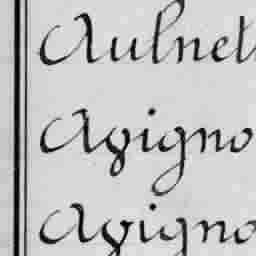 Aulnet
Avigno
Avigno